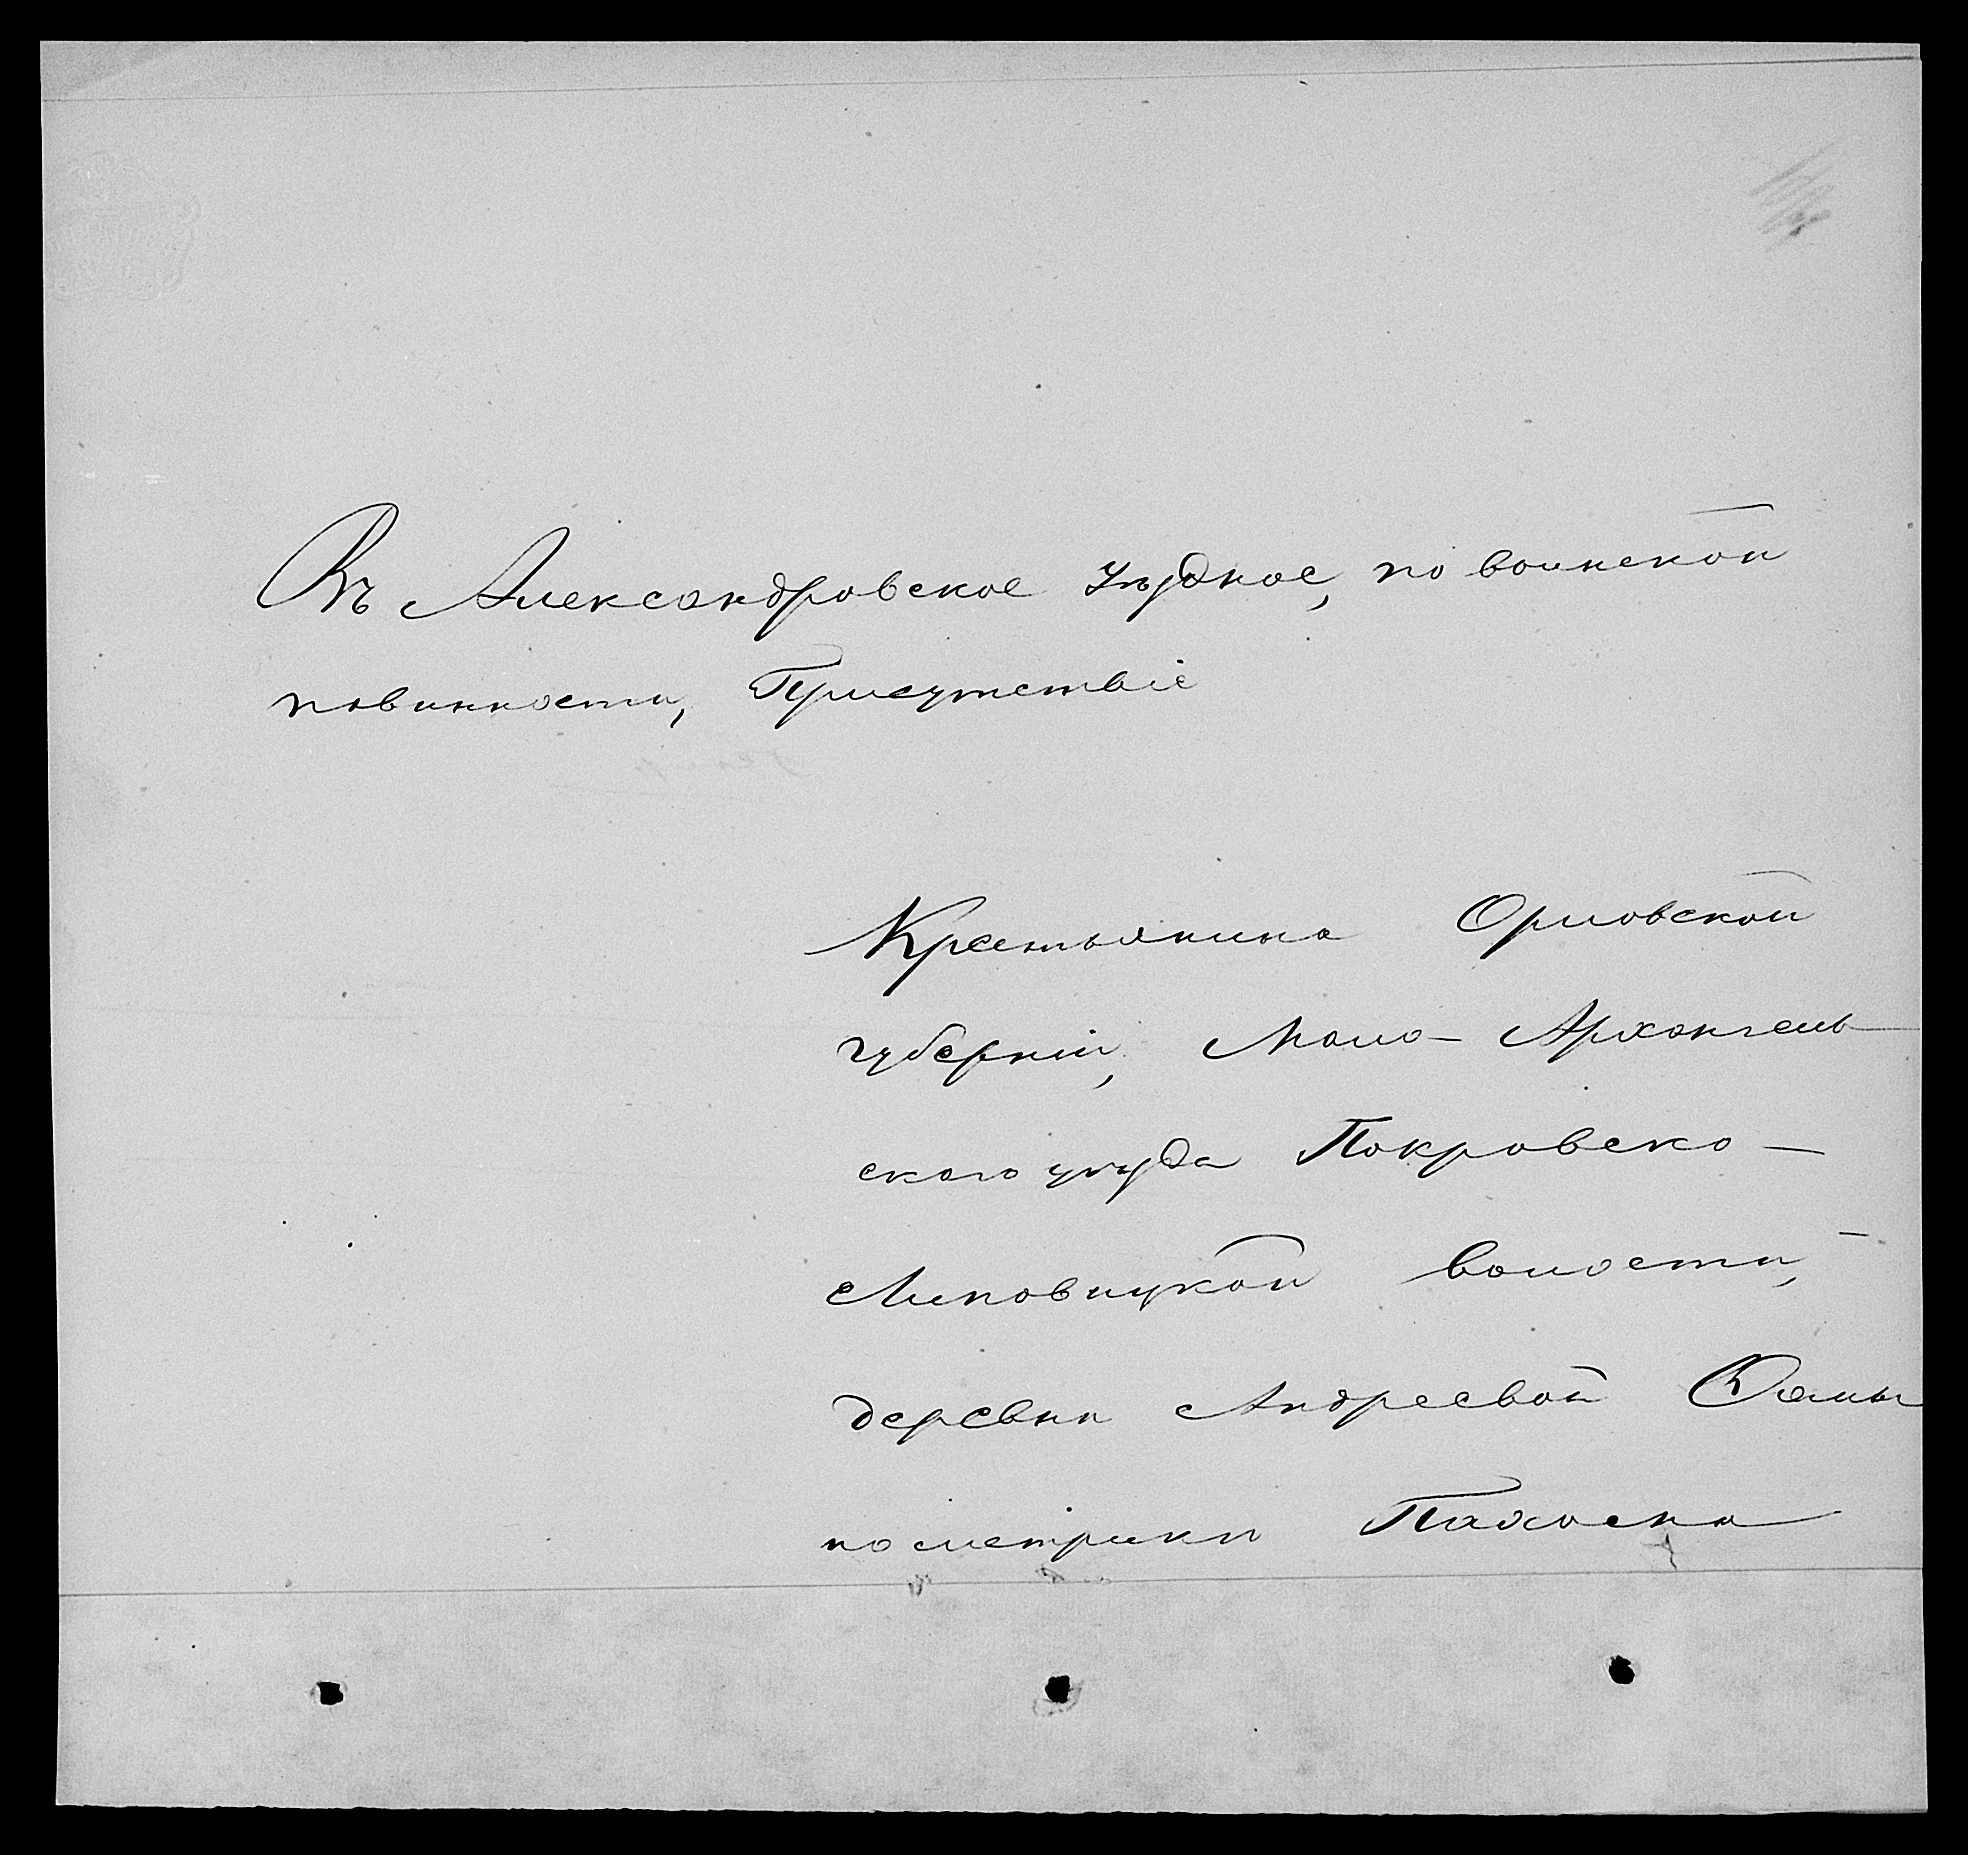 Въ Александровское уѣздное, по воинской
повинности, Присутствіе
Крестьянина Орловской
губерніи, Мало-Архангель
скаго уѣзда Покровско-
Липовицкой волости,
деревни Андреевой
по метрики